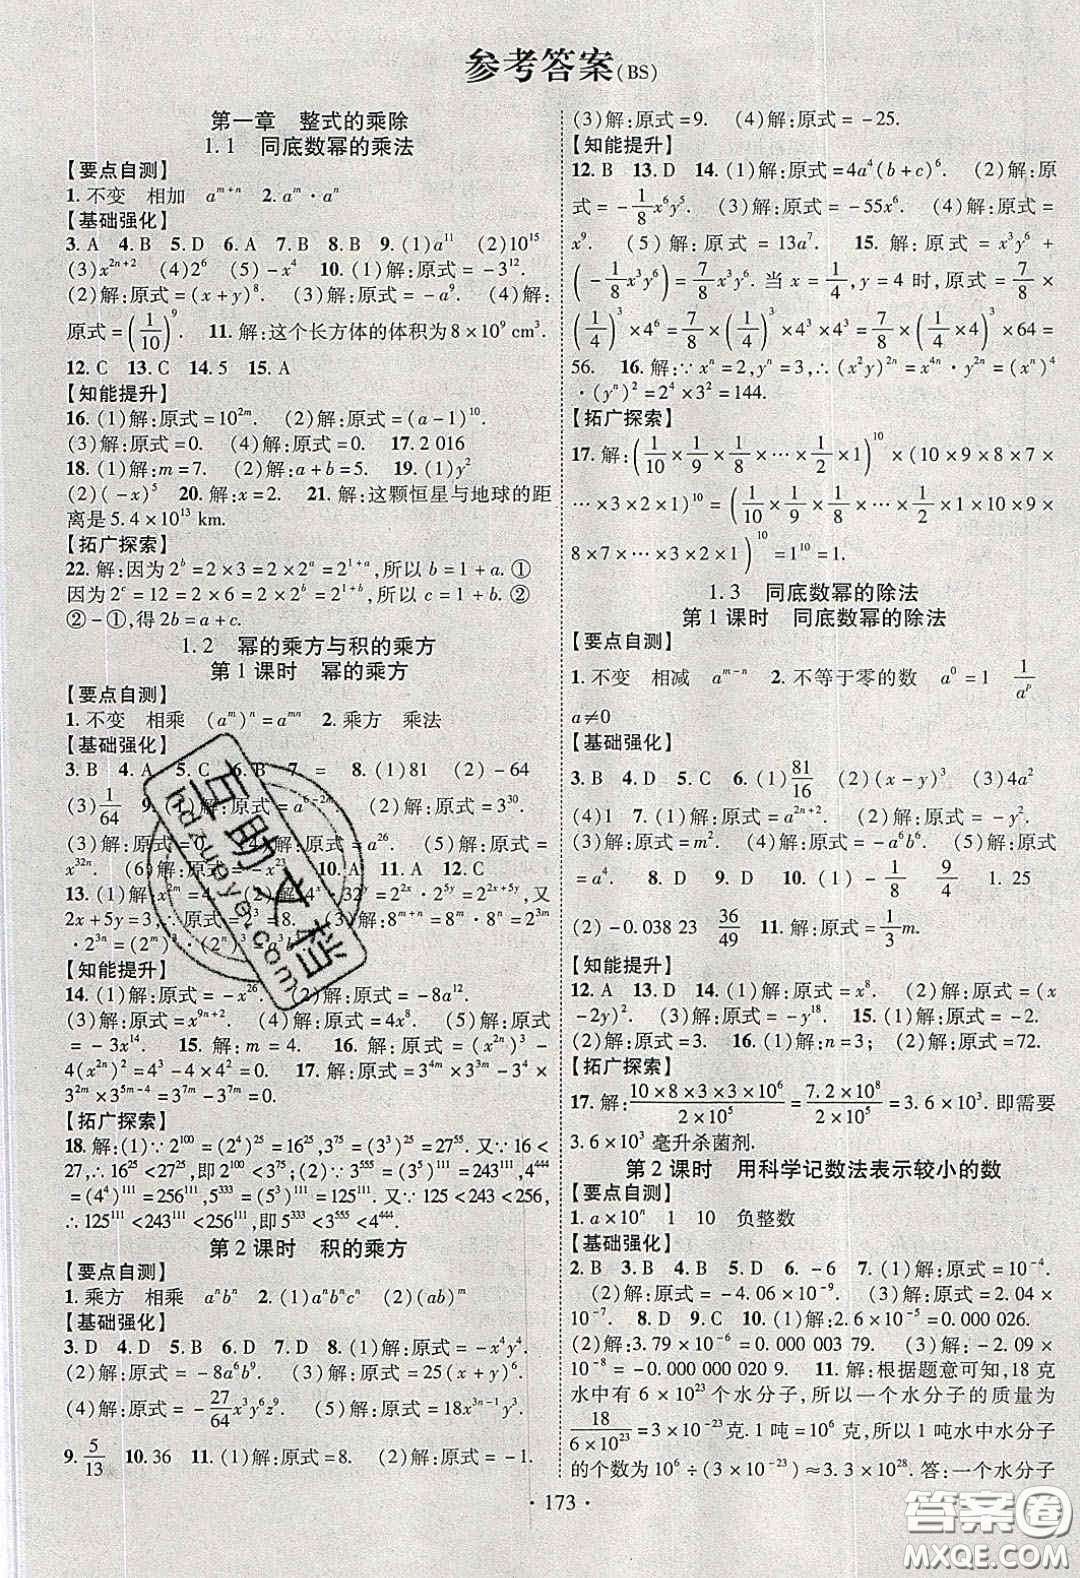 参考答案(BS)
第一章 整式的乘除
1.1 同底数幂的乘法
【要点自测】
1. 不变 相加 a^{m+n} 2. a^m·a^n
【基础强化】
3. A 4. B 5. D 6. A 7. B 8. B 9. (1)a^{11} (2)10^{15}
(3)x^{2n+2} (4)2^6 (5)-x^4 10. (1)解:原式=-3^{12}.
(2)解:原式=(x+y)^8. (3)解:原式=-a^9. (4)解:
原式=(1/10)^9. 11. 解:这个长方体的体积为8×10^9 cm^3.
12. C 13. C 14. 5 15. A
【知能提升】
16. (1)解:原式=10^{2m}. (2)解:原式=(a-1)^{10}.
(3)解:原式=0. (4)解:原式=0. 17. 2 016
18. (1)解:m=7. (2)解:a+b=5. 19. (1)y^2
(2)(-x)^5 20. 解:x=2. 21. 解:这颗恒星与地球的距
离是5.4×10^{13} km.
【拓广探索】
22. 解:因为2^b=6=2×3=2×2^a=2^{1+a},所以b=1+a. ①
因为2^c=12=2×6=2×2^b=2^{1+b},所以c=1+b. ②
②-①,得2b=a+c.
1.2 幂的乘方与积的乘方
第1课时 幂的乘方
【要点自测】
1. 不变 相乘 (a^m)^n=a^{mn} 2. 乘方 乘法
【基础强化】
3. B 4. A 5. C 6. B 7. = 8. (1)81 (2)-64
(3)1/64 9. (1)解:原式=a^{6-2m}. (2)解:原式=3^{30}.
(3)解:原式=a^{24}. (4)解:原式=a^{26}. (5)解:原式=
x^{32n}. (6)解:原式=-x^{23}. 10. A 11. A 12. C
13. (1)解:x^{2m}=4. (2)解:4^x·32^y=2^{2x}·2^{5y}=2^{2x+5y},又
2x+5y=3,∴原式=2^3=8. (3)解:8^{m+n}=8^m·8^n=2^{3m}
·2^{3n}=(2^m)^3·(2^n)^3=a^3b^3.
【知能提升】
14. (1)解:原式=-x^{26}. (2)解:原式=-8a^{12}.
(3)解:原式=x^{9n+2}. (4)解:原式=4x^8. (5)解:原式
=-3x^{14}. 15. 解:m=4. 16. 解:原式=(x^{2n})^3-
4(x^{2n})^2=4^3-4×4^2=0. 17. 解:原式=3^{4m}×3^{3m-4}-3^{5m}
×3^{2m}×3^{5m-4}=3^{7m}-3^{7m}=0.
【拓广探索】
18. 解:(1)∵2^{100}=(2^4)^{25}=16^{25},3^{75}=(3^3)^{25}=27^{25}. 又∵16<
27,∴16^{25}<27^{25},即2^{100}<3^{75}. (2)∵3^{555}=(3^5)^{111}=243^{111},4^{444}
=(4^4)^{111}=256^{111},5^{333}=(5^3)^{111}=125^{111}. 又∵125<243<256,
∴125^{111}<243^{111}<256^{111},即5^{333}<3^{555}<4^{444}.
第2课时 积的乘方
【要点自测】
1. 乘方 相乘 a^nb^n 2. (1)a^nb^nc^n (2)(ab)^m
【基础强化】
3. D 4. D 5. D 6. A 7. D 8. (1)解:原式=-x^4y^4.
(2)解:原式=-8a^6b^9. (3)解:原式=25(x+y)^6.
(4)解:原式=-27/64x^3y^6z^9. (5)解:原式=18x^{3n-1}y^6.
9. 5/13 10. 36 11. (1)解:原式=8. (2)解:原式=-1.
(3)解:原式=9. (4)解:原式=-25.
【知能提升】
12. B 13. D 14. (1)解:原式=4a^4(b+c)^6. (2)解:原
式=-1/8x^6y^5. (3)解:原式=-55x^6. (4)解:原式=
x^9. (5)解:原式=13a^7. 15. 解:原式=x^3y^6+
(-1/8x^3y^6)=7/8x^3y^6. 当x=1/4,y=4时,原式=7/8×
(1/4)^3×4^6=7/8×(1/4)^3×4^3×4^3=7/8×(1/4×4)^3×64=
56. 16. 解:∵x^n=2,y^n=3,∴(x^2y)^{2n}=x^{4n}·y^{2n}=(x^n)^4
·(y^n)^2=2^4×3^2=144.
【拓广探索】
17. 解:(1/10×1/9×1/8×…×1/2×1)^{10}×(10×9×8×7×
…×3×2×1)^{10}=(1/10×1/9×1/8×…×1/2×1×10×9×
8×7×…×3×2×1)^{10}=1^{10}=1.
1.3 同底数幂的除法
第1课时 同底数幂的除法
【要点自测】
1. 不变 相减 a^{m-n} 2. 不等于零的数 a^0=1 1/a^p
a≠0
【基础强化】
3. B 4. D 5. C 6. (1)81/16 (2)(x-y)^3 (3)4a^2
(4)1 7. (1)解:原式=a^{2n+2}. (2)解:原式=x^2.
(3)解:原式=m^2. (4)解:原式=-a^6b^6. (5)解:原式
=a^4. 8. D 9. D 10. (1)-1/8 9/4 1.25
(2)-0.038 23 36/49 11. 解:原式=1/3m.
【知能提升】
12. A 13. D 14. (1)解:原式=x^8. (2)解:原式=(x
-2y)^2. (3)解:原式=-y^{18}. 15. (1)解:原式=-2.
(2)解:原式=3. 16. (1)解:n=3; (2)解:原式=72.
【拓广探索】
17. 解:10×8×3×3×10^6/2×10^5=7.2×10^8/2×10^5=3.6×10^3. 即需要
3.6×10^3 毫升杀菌剂.
第2课时 用科学记数法表示较小的数
【要点自测】
1. a×10^n 1 10 负整数
【基础强化】
2. B 3. B 4. B 5. D 6. -6 7. (1)解:原式=10^{-4}.
(2)解:原式=-4.06×10^{-5}. (3)解:原式=2.04×
10^{-7}. 8. D 9. C 10. (1)解:2.6×10^{-5}=0.000 026.
(2)解:3.79×10^{-6}=0.000 003 79. (3)解:-2.09×
10^{-8}=-0.000 000 020 9. 11. 解:根据题意可知,18克
水中有6×10^{23}个水分子,所以一个水分子的质量为
18/6×10^{23}=3×10^{-23}克. 1吨=10^6克,所以1吨水中水分子
的个数为10^6÷(3×10^{-23})≈3.3×10^{28}. 答:一个水分子
·173·
互助文档
hdzuoye.com
答案圈
MXQE.COM